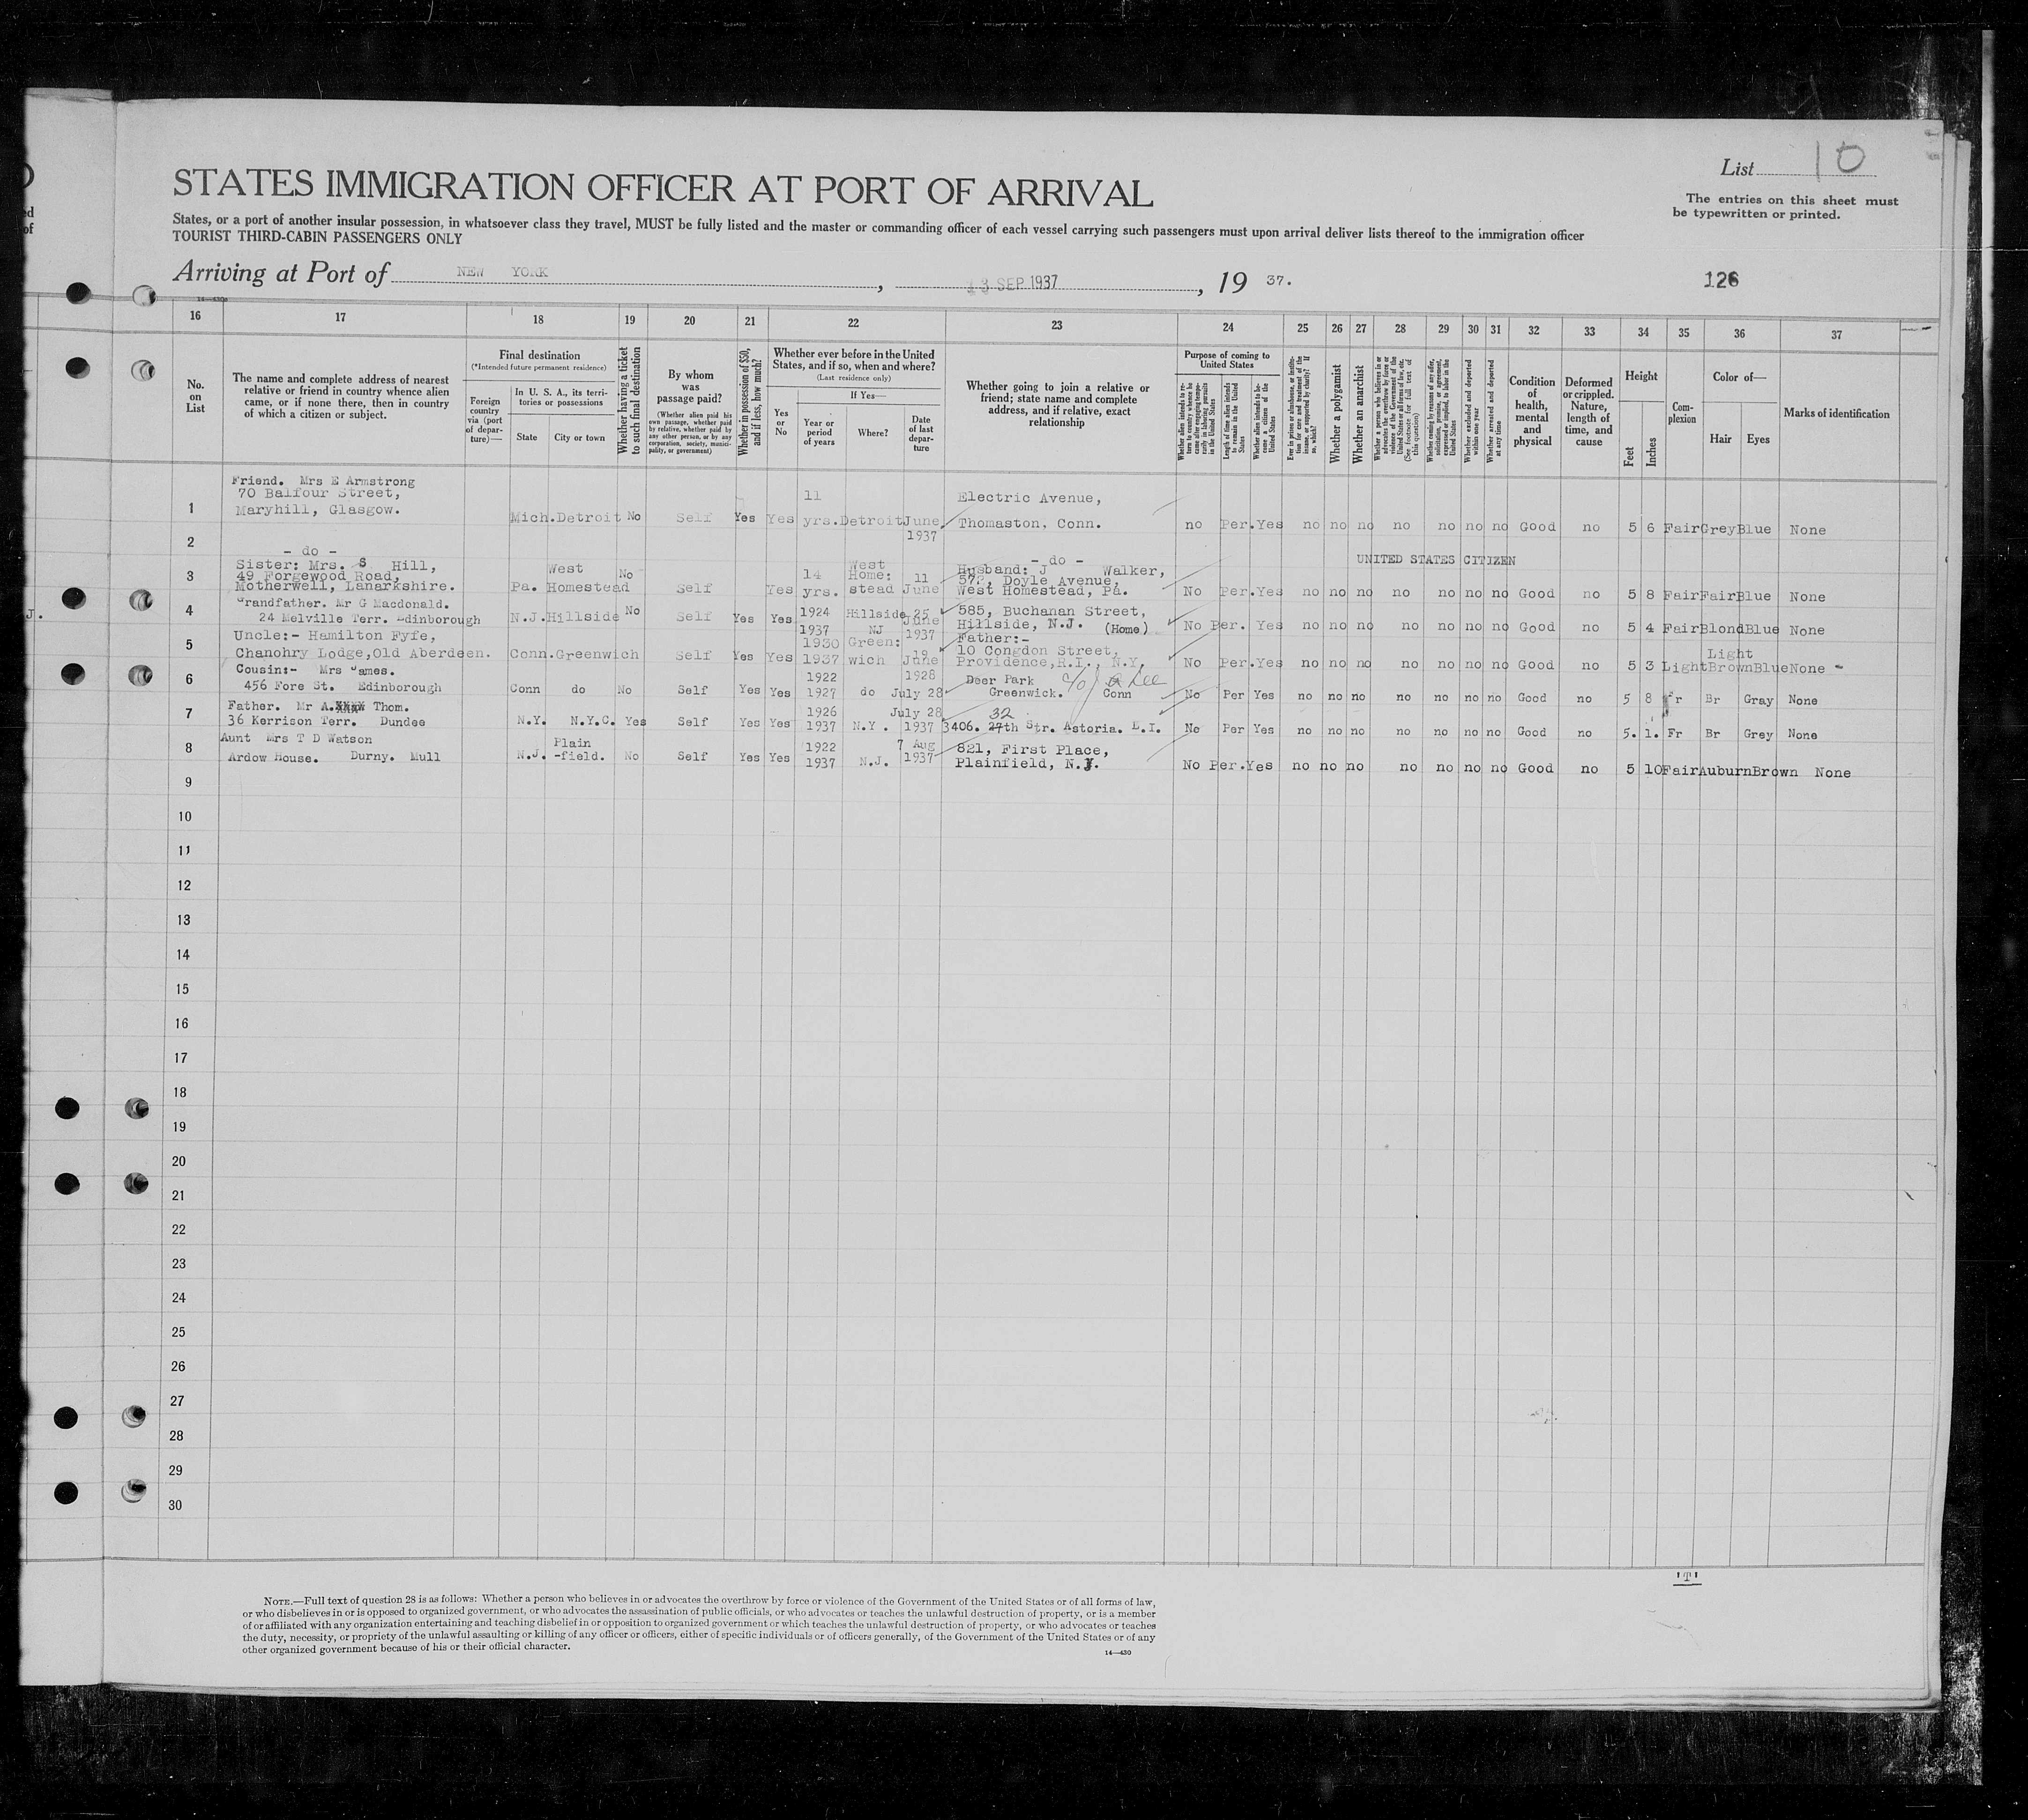 List 10
The entries on this sheet must
be typewritten or printed.
STATES IMMIGRATION OFFICER AT PORT OF ARRIVAL
States, or a port of another insular possession, in whatsoever class they travel, MUST be fully listed and the master or commanding officer of each vessel carrying such passengers must upon arrival deliver lists thereof to the immigration officer
TOURIST THIRD-CABIN PASSENGERS ONLY
Arriving at Port of NEW YORK, SEP 1937, 19 37.
126
16 17 18 19 20 21 22 23 24 25 26 27 28 29 30 31 32 33 34 35 36 37
No. on List
The name and complete address of nearest
relative or friend in country whence alien
came, or if none there, then in country
of which a citizen or subject.
Final destination
(*Intended future permanent residence)
Foreign country via (port of departure)—
In U. S. A., its territories or possessions
State City or town
Whether having a ticket to such final destination
By whom was passage paid?
(Whether alien paid his own passage, whether paid by relative, whether paid by any other person, or by any corporation, society, municipality, or government)
Whether in possession of $50, and if less, how much?
Whether ever before in the United
States, and if so, when and where?
(Last residence only)
Yes or No
If Yes—
Year or period of years
Where?
Date of last departure
Whether going to join a relative or
friend; state name and complete
address, and if relative, exact
relationship
Purpose of coming to
United States
Whether a polygamist
Whether an anarchist
Whether excluded and deported within one year
Whether arrested and deported at any time
Condition of health, mental and physical
Deformed or crippled. Nature, length of time, and cause
Height
Feet Inches
Complexion
Color of—
Hair Eyes
Marks of identification
Friend. Mrs E Armstrong
70 Balfour Street, 11 Electric Avenue,
1 Maryhill, Glasgow. Mich. Detroit No Self Yes Yes yrs. Detroit June 1937 Thomaston, Conn. no Per. Yes no no no no no no no Good no 5 6 Fair Grey Blue None
2 - do - - do - UNITED STATES CITIZEN
Sister: Mrs. S Hill, West Husband: J Walker,
3 49 Forgewood Road, No 14 Home: 11 Doyle Avenue,
Motherwell, Lanarkshire. Pa. Homestead Self Yes yrs. stead June West Homestead, Pa. No Per. Yes no no no no no no no Good no 5 8 Fair Fair Blue None
4 Grandfather. Mr G Macdonald. No 1924 Hillside 25 585, Buchanan Street,
24 Melville Terr. Edinborough N.J. Hillside Self Yes Yes 1937 NJ June 1937 Hillside, N.J. (Home) No Per. Yes no no no no no no no Good no 5 4 Fair Blond Blue None
5 Uncle:- Hamilton Fyfe, 1930 Green: 19 Father:- 10 Congdon Street,
Chanohry Lodge, Old Aberdeen. Conn. Greenwich Self Yes Yes 1937 wich June Providence, R.I., N.Y. No Per. Yes no no no no no no no Good no 5 3 Light Light Brown Blue None -
6 Cousin:- Mrs James. 1922 1928 Deer Park c/o Lee
456 Fore St. Edinborough Conn do No Self Yes Yes 1927 do July 28 Greenwick. Conn No Per Yes no no no no no no no Good no 5 8 Fr Br Gray None
7 Father. Mr A. Thom. 1926 July 28 32
36 Kerrison Terr. Dundee N.Y. N.Y.C. Yes Self Yes Yes 1937 N.Y. 1937 3406. 27th Str. Astoria. L.I. No Per Yes no no no no no no no Good no 5. 1. Fr Br Grey None
8 Aunt Mrs T D Watson Plain 1922 7 Aug 821, First Place,
Ardow House. Durny. Mull N.J. -field. No Self Yes Yes 1937 N.J. 1937 Plainfield, N.J. No Per. Yes no no no no no no no Good no 5 10 Fair Auburn Brown None
9
10
11
12
13
14
15
16
17
18
19
20
21
22
23
24
25
26
27
28
29
30
"T"
NOTE.—Full text of question 28 is as follows: Whether a person who believes in or advocates the overthrow by force or violence of the Government of the United States or of all forms of law,
or who disbelieves in or is opposed to organized government, or who advocates the assassination of public officials, or who advocates or teaches the unlawful destruction of property, or is a member
of or affiliated with any organization entertaining and teaching disbelief in or opposition to organized government or which teaches the unlawful destruction of property, or who advocates or teaches
the duty, necessity, or propriety of the unlawful assaulting or killing of any officer or officers, either of specific individuals or of officers generally, of the Government of the United States or of any
other organized government because of his or their official character.
14—430